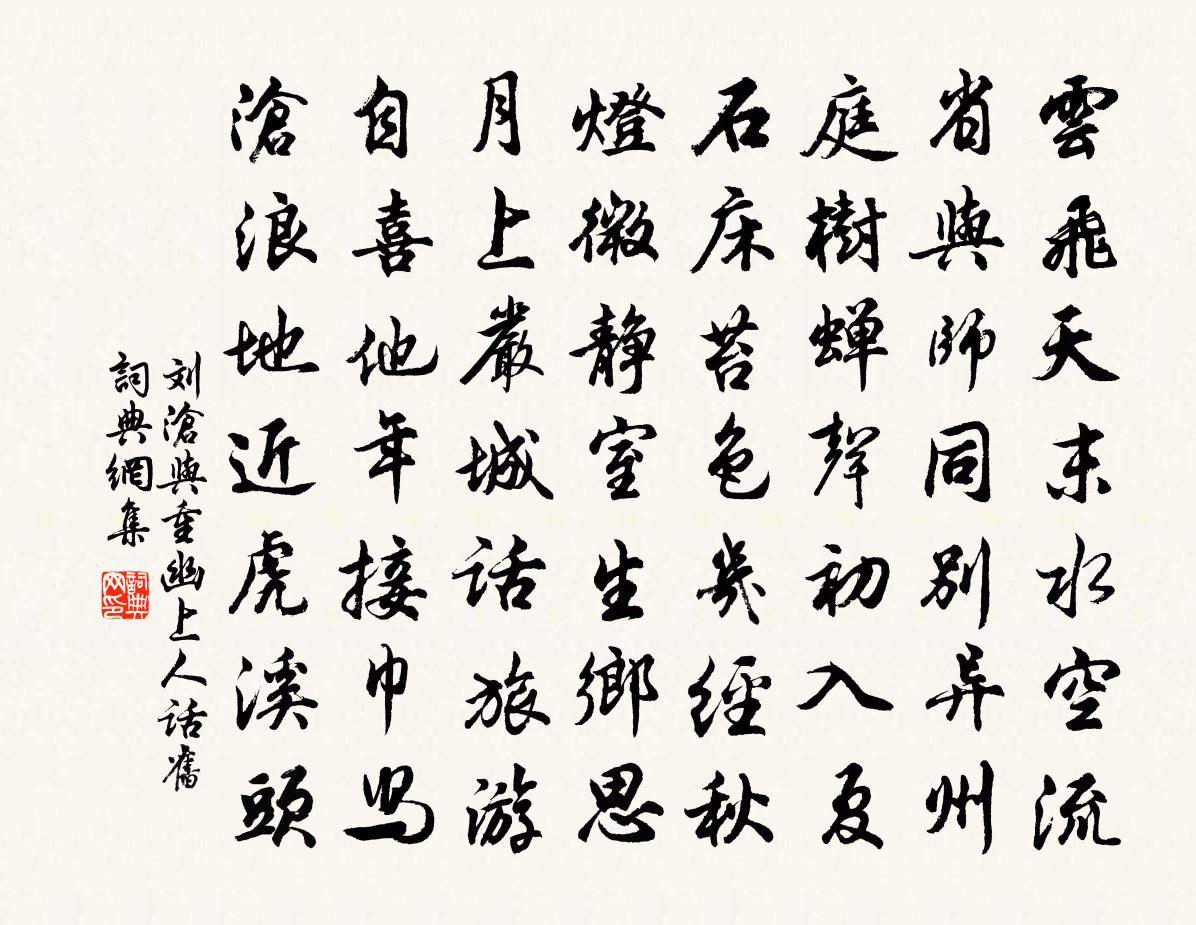 雲飛天末水空流
省與師同别异州
庭樹蝉聲初入夏
石床苔色幾經秋
燈微静室生鄉思
月上嚴城話旅游
自喜他年接巾舄
滄浪地近虎溪頭
刘滄與重幽上人話舊
詞典網集
詞典网印